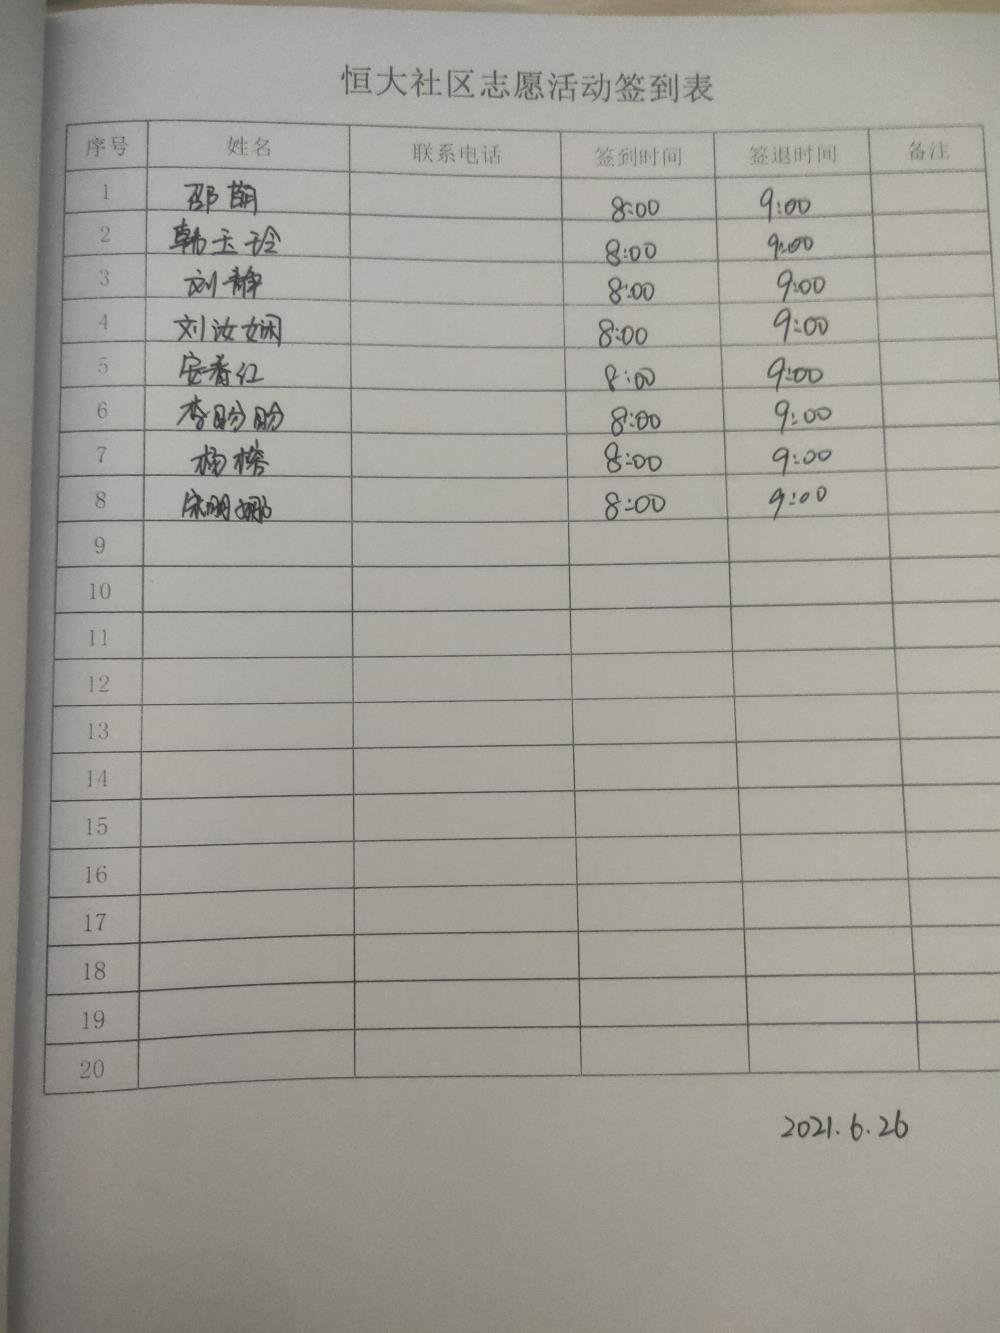 恒大社区志愿活动签到表
序号 姓名 联系电话 签到时间 签退时间 备注
1 邵萌 8:00 9:00
2 韩玉玲 8:00 9:00
3 刘静 8:00 9:00
4 刘汝娴 8:00 9:00
5 安春红 8:00 9:00
6 李盼盼 8:00 9:00
7 杨榕 8:00 9:00
8 宋明娜 8:00 9:00
9
10
11
12
13
14
15
16
17
18
19
20
2021.6.26